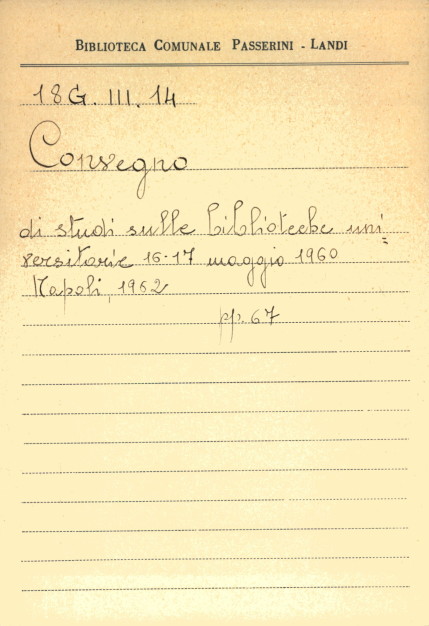 BIBLIOTECA COMUNALE PASSERINI - LANDI
18G. III. 14
Convegno
di studi sulle biblioteche uni=
versitarie 16-17 maggio 1960
Napoli, 1962
pp. 67